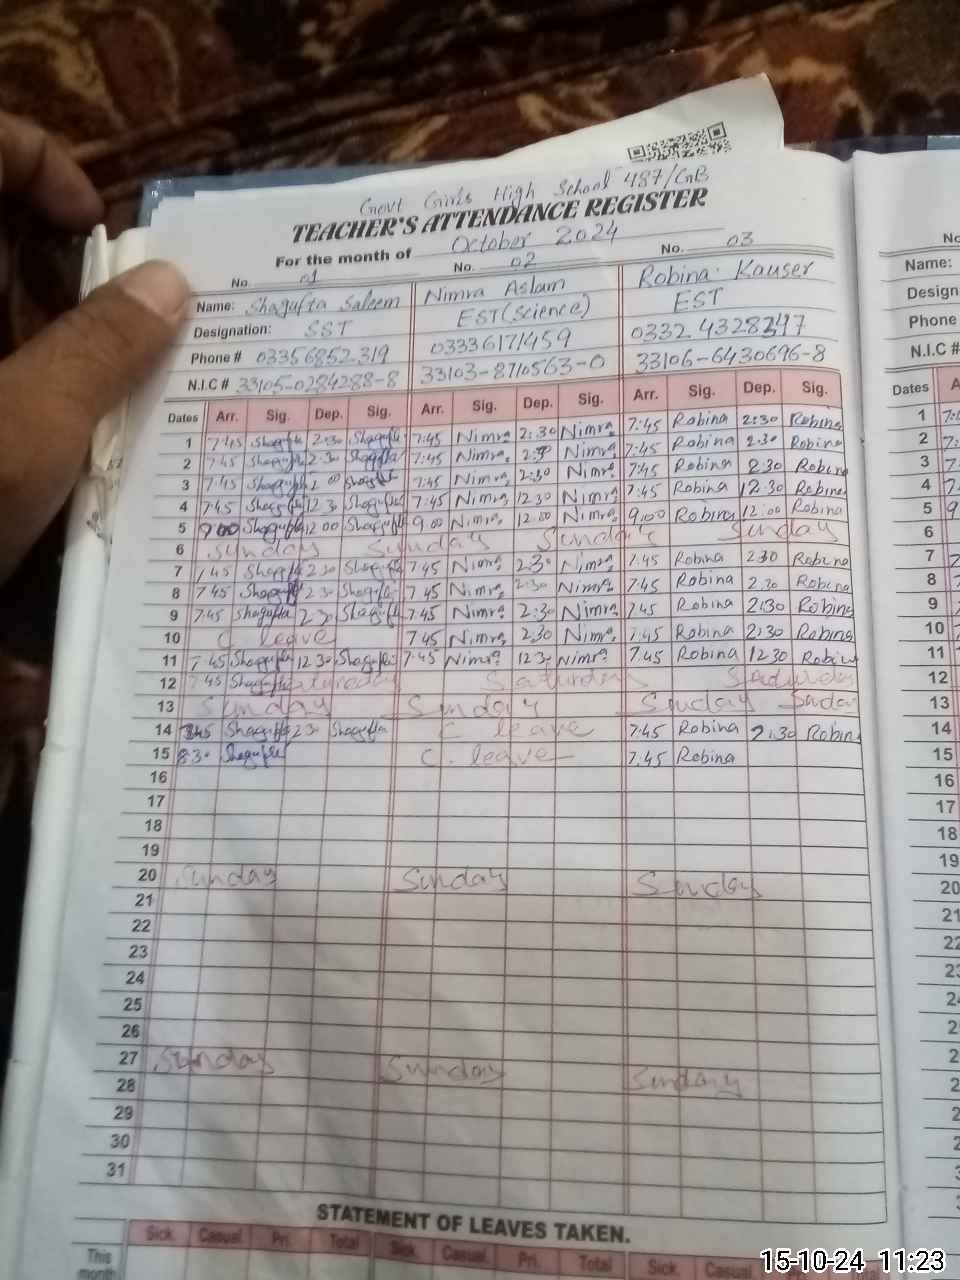 Govt Girls High School 487/GB
TEACHER'S ATTENDANCE REGISTER
For the month of October 2024
No. 01 No. 02 No. 03
Name: Shagufta Saleem Nimra Aslam Robina Kauser
Designation: SST EST(Science) EST
Phone # 03356852319 03336171459 0332 4328347
N.I.C # 33105-0284288-8 33103-8710563-0 33106-6430696-8
Dates Arr. Sig. Dep. Sig. Arr. Sig. Dep. Sig. Arr. Sig. Dep. Sig.
1 7:45 Shagufta 2:30 Shagufta 7:45 Nimra 2:30 Nimra 7:45 Robina 2:30 Robina
2 7:45 Shagufta 2:30 Shagufta 7:45 Nimra 2:30 Nimra 7:45 Robina 2:30 Robina
3 7:45 Shagufta Shagufta 7:45 Nimra 2:30 Nimra 7:45 Robina 2:30 Robina
4 7:45 Shagufta 12:30 Shagufta 7:45 Nimra 12:30 Nimra 7:45 Robina 12:30 Robina
5 9:00 Shagufta 12:00 Shagufta 9:00 Nimra 12:00 Nimra 9:00 Robina 12:00 Robina
6 Sunday Sunday Sunday Sunday
7 7:45 Shagufta 2:30 Shagufta 7:45 Nimra 2:30 Nimra 7:45 Robina 2:30 Robina
8 7:45 Shagufta 2:30 Shagufta 7:45 Nimra 2:30 Nimra 7:45 Robina 2:30 Robina
9 7:45 Shagufta 2:30 Shagufta 7:45 Nimra 2:30 Nimra 7:45 Robina 2:30 Robina
10 C. leave 7:45 Nimra 2:30 Nimra 7:45 Robina 2:30 Robina
11 7:45 Shagufta 12:30 Shagufta 7:45 Nimra 12:30 Nimra 7:45 Robina 12:30 Robina
12 7:45 Shagufta Saturday Saturday
13 Sunday Sunday Sunday Sunday
14 7:45 Shagufta 2:30 Shagufta C leave 7:45 Robina 2:30 Robina
15 8:30 Shagufta C. leave 7:45 Robina
16
17
18
19
20 Sunday Sunday Sunday
21
22
23
24
25
26
27 Sunday Sunday Sunday
28
29
30
31
STATEMENT OF LEAVES TAKEN.
Sick Casual Pri. Total Sick Casual Pri. Total Sick Casual
This month
Name:
Phone
N.I.C #
Dates
1
2
3
4
5
6
7
8
9
10
11
12
13
14
15
16
17
18
19
20
21
22
15-10-24 11:23